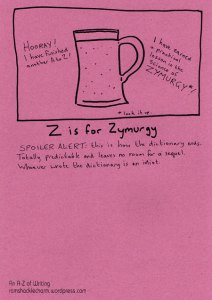 HOORAY!
I have finished
another A to Z!
I have earned
a practical
lesson in the
science of
ZYMURGY*!
* look it up
Z is for Zymurgy
SPOILER ALERT: this is how the dictionary ends.
Totally predictable and leaves no room for a sequel.
Whoever wrote the dictionary is an idiot.
An A-Z of Writing
ramshacklecharm.wordpress.com